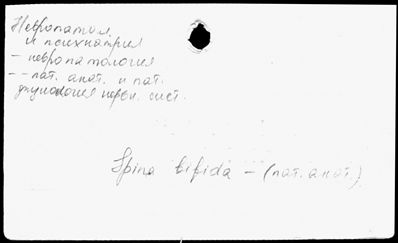 Невропатол.
и психиатрия
- невропатология
-- пат. анат. и пат.
физиология нервн. сист.
Spina bifida - (пат. анат.)